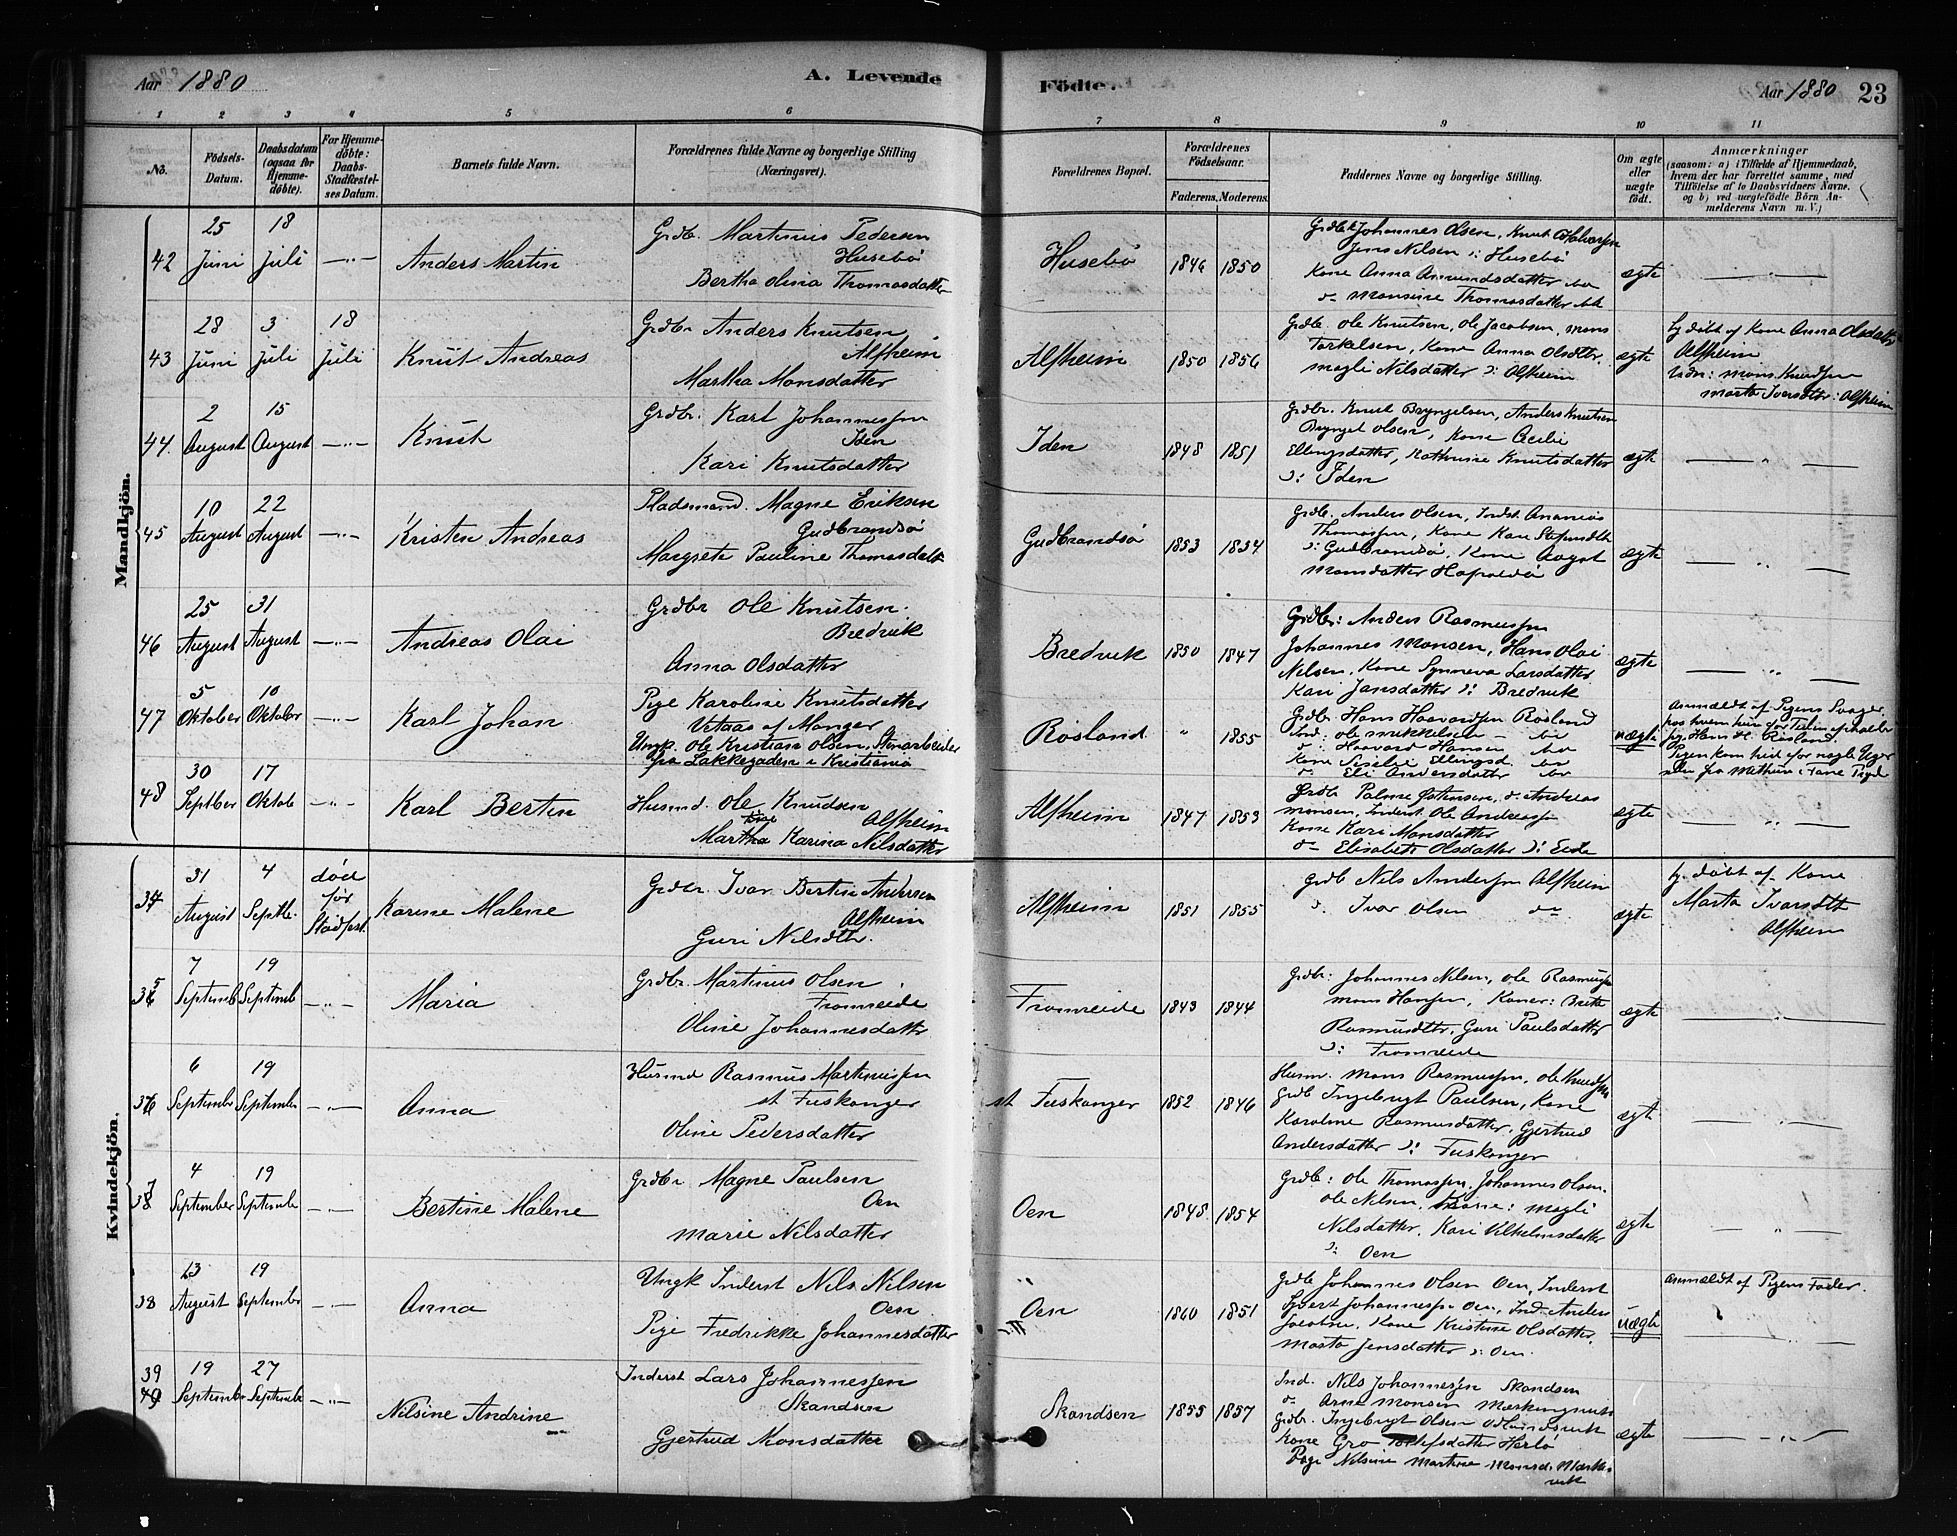 Aar 1880 A. Levende Födte. Aar 1880 23
1 2 3 4 5 6 7 8 9 10 11
No. Födsels-Datum. Daabsdatum (ogsaa for Hjemme-døbte). For Hjemme-døbte: Daabs-Stadfæstel-ses Datum. Barnets fulde Navn. Forældrenes fulde Navne og borgerlige Stilling (Næringsvei). Forældrenes Bopæl. Forældrenes Fødselsaar. Faderens. Moderens. Faddernes Navne og borgerlige Stilling. Om ægte eller uægte født. Anmærkninger (saasom: a) i Tilfælde af Hjemmedaab, hvem der har forrettet samme, med Tilføielse af to Daabsvidners Navne. og b) ved uægtefødte Börn An-melderens Navn m. V.)
Mandkjön.
42 25 Juni 18 Juli —"— Anders Martin
Grdb. Martinus Pedersen
Husebø
Bertha Olina Thomasdatter
Husebø 1846 1850
Grdb Johannes Olsen, Knut Halvorsen
Jens Nilsen ɔ: Husebø
Kone Anna Amundsdatter
do Monsine Thomasdatter
ægte — " —
43 28 Juni 3 Juli 18 Juli Knut Andreas
Grdbr Anders Knutsen
Alfheim
Martha Monsdatter
Alfheim 1850 1856
Grdb. Ole Knutsen, Ole Jacobsen, Mons
Torkelsen, Kone Anna Olsdtr.
Magli Nilsdatter ɔ: Alfheim
ægte
hj. døbt af Kone Anna Olsdatter
Alfheim
Vidn: Mons Knudsen
Marta Iversdtr: Alfheim
44. 2 August 15 August —"— Knut
Grdbr. Karl Johannessen
Iden
Kari Knutsdatter
Iden 1848 1851
Grdbr. Knut Bryngelsen, Anders Knutsen
Bryngel Olsen, Kone Cecilie
Ellingsdatter, Kathrine Knutsdatter
ɔ: Iden
ægte — " —
45 10 August 22 August —"— Kristen Andreas
Pladsmand. Magne Eriksen
Gudbrandsø
Margrete Pauline Thomasdatt
Gudbrandsø 1853 1854
Grdb. Anders Olsen, Indst. Ananias
Thomassen, Kone Kari
ɔ: Gudbrandsø, Kone
Monsdatter
ægte — " —
46 25 August 31 August —"— Andreas Olai
Grdbr Ole Knutsen.
Bredvik
Anna Olsdatter
Bredvik 1850 1847
Grdbr: Anders Rasmussen
Johannes Monsen, Hans Olai
Nilsen, Kone Synneva Larsdatter
Kari Jansdatter ɔ: Bredvik
ægte — " —
47 5 Oktober 10 Oktober —"— Karl Johan
Pige Karoline Knutsdatter
Vitaas af Manger
Ungk. Ole Kristian Olsen, Stenarbeider
fra Lakkegaden i Kristiania
Røsland " 1855
Grdbr Hans Haavardsen Røsland
Ind. Ole Mikkelsen
do Haavard Hansen
Kone Siselie Ellingsd
do Eli Andersdatter
uægte
Anmeldt af Pigens Svoger,
hos hvem hun for Tiden opholder
sig Hans H. Røsland.
Pigen kom hid for nogle Uger
siden fra
48 30 Septber 17 Oktob —"— Karl Bertin
Husmd. Ole Knudsen
Alfheim
Kone
Martha Karina Nilsdatter
Alfheim 1847 1853
Grdb Palme Østensen, do Andreas
Monsen, Inderst Ole Andreass
Kone Kari Monsdatter
do Elisabeth Olsdatter ɔ: Eide
ægte — " —
Kvindekjön.
34 31 August 4 Septbr. død før Stadfæst. Karine Malene
Grdbr. Ivar Bertin Andersen
Alfheim
Guri Nilsdtr.
Alfheim 1851 1855
Grdb Nils Andersen Alfheim
do Ivar Olsen do
ægte
hj. døbt af Kone
Marta Ivarsdtr
Alfheim
35 7 Septemb 19 Septemb —"— Maria
Grdbr. Martinus Olsen
Fromreide
Oline Johannesdatter
Fromreide 1843 1844
Grdbr: Johannes Nilsen, Ole Rasmussen
Mons Hansen, Koner: Brithe
Rasmusdtr, Guri Paulsdatter
ɔ: Fromreide
ægte — " —
36 6 September 19 September —"— Anna
Husmd Rasmus Martinussen
st Fuskanger
Oline Pedersdatter
st Fuskanger 1852 1846
Husm. Mons Rasmussen, Ole Knudsen
Grdb Ingebrigt Paulsen, Kone
Karoline Rasmusdatter, Gjertrud
Andersdatter ɔ: Fuskanger
ægt — " —
37 4 September 19 Septembr —"— Bertine Malene
Grdbr Magne Paulsen
Oen
Marie Nilsdatter
Oen 1848 1854
Grdb: Ole Thomassen, Johannes Olsen.
Ole Nilsen, Kone: Magli
Nilsdatter, Kari Vilhelmsdatter
ɔ: Oen
ægte — " —
38 13 August 19 September —"— Anna
Ungk Inderst Nils Nilsen
Oen
Pige Fredrikke Johannesdatter
Oen 1860 1851
Grdb Johannes Olsen Oen, Inderst
Sjvert Johannessen Oen, Ind. Anders
Jacobsen, Kone Kristine Olsdatter,
Marta Jensdatter ɔ: Oen.
uægte
Anmeldt af Pigens Fader.
39 19 September 27 September —"— Nilsine Andrine
Inderst Lars Johannessen
Skandsen
Gjertrud Monsdatter
Skandsen 1855 1857
Ind. Nils Johannessen Skandsen
do Arne Monsen
Grdbr. Ingebrigt Olsen
Kone Gro Herlø
Pige Nilsine Martine Monsd.
ægte — " —